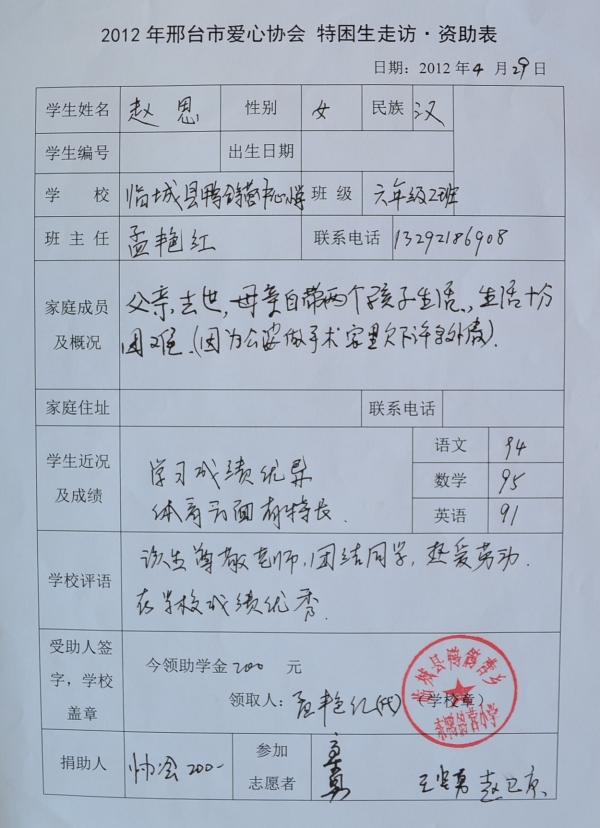 2012年邢台市爱心协会 特困生走访·资助表
日期：2012年4月29日
学生姓名 赵恩 性别 女 民族 汉
学生编号 出生日期
学校 临城县鸭鸽营中心小学 班级 六年级2班
班主任 孟艳红 联系电话 13292186908
家庭成员及概况
父亲去世，母亲自带两个孩子生活，生活十分
困难.(因为公婆做手术家里欠下许多外债).
家庭住址 联系电话
学生近况及成绩
学习成绩优异
体育方面有特长.
语文 94
数学 95
英语 91
学校评语
该生尊敬老师,团结同学,热爱劳动.
在学校成绩优秀.
受助人签字，学校盖章
今领助学金200元
领取人：孟艳红(代) (学校章)
临城县鸭鸽营乡
捐助人 协会200-
参加志愿者 赵卫京